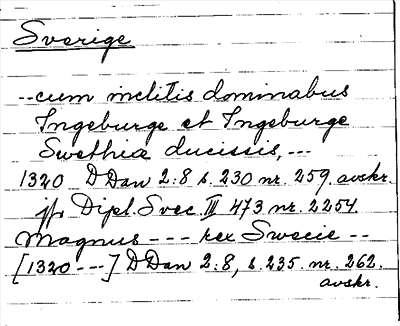 Sverige
--cum inclitis dominabus
Ingeburge et Ingeburge
Swethiæ ducissis, ---
1320 DDan 2:8 s. 230 nr. 259. avskr.
jfr Dipl. Svec III 473 nr. 2254.
Magnus --- rex Swecie --
[1320 ---] DDan 2:8, s. 235. nr. 262.
avskr.